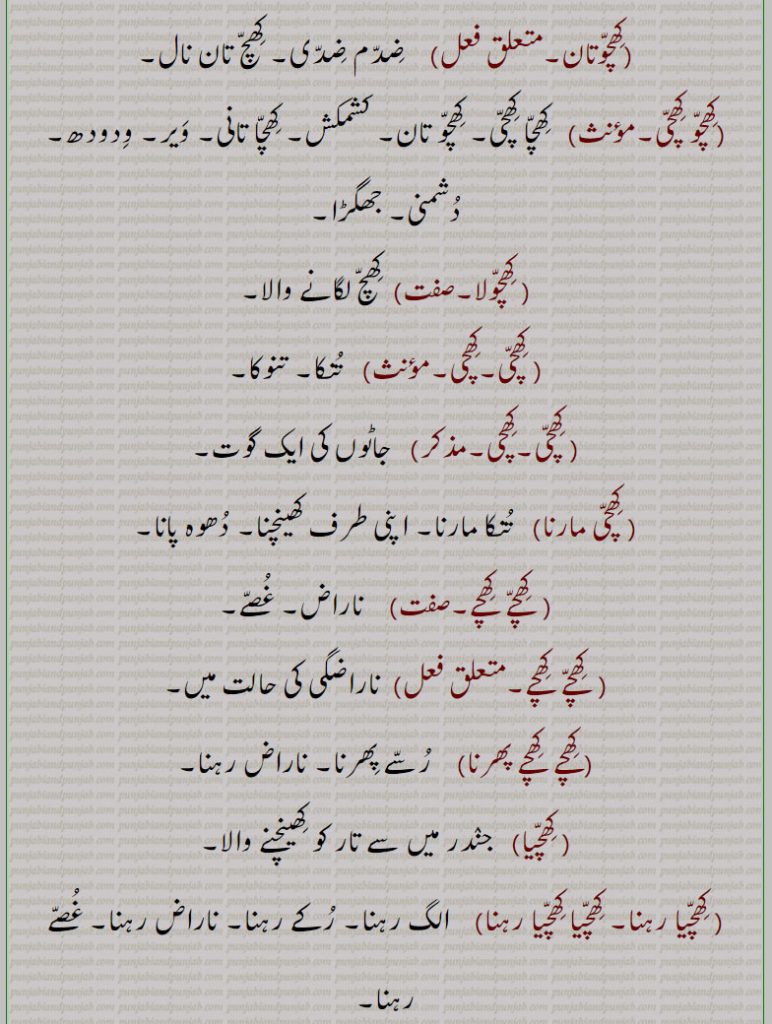 (کِھچّوتان۔متعلق فعل) ضِدّم ضِدّی۔ کِھچّ تان نال۔
(کِھچّو کِھچّی۔مؤنث) کِھچّا کِھچّی۔ کِھچّو تان۔ کشمکش۔ کِھچّا تانی۔ وَیر۔ وِدودھ۔
دُشمنی۔ جھگڑا۔
(کِھچّولا۔صفت) کِھچّ لگانے والا۔
(کِھچّی۔کِھچی۔مؤنث) تُنکا۔ تنوکا۔
(کِھچّی۔کِھچی۔مذکر) جاٹوں کی ایک گوت۔
(کِھچّی مارنا) تُنکا مارنا۔ اپنی طرف کھینچنا۔ دُھوہ پانا۔
(کِھچّے کِھچے۔صفت) ناراض۔ غُصّے۔
(کِھچّے کِھچے۔متعلق فعل) ناراضگی کی حالت میں۔
(کِھچے کِھچے پھرنا) رُسّے پِھرنا۔ ناراض رہنا۔
(کِھچّیا) جنْدر میں سے تار کو کِھینچنے والا۔
(کِھچّیا رہنا۔ کِھچّیا کِھچّیا رہنا) الگ رہنا۔ رُکے رہنا۔ ناراض رہنا۔ غُصّے
رہنا۔